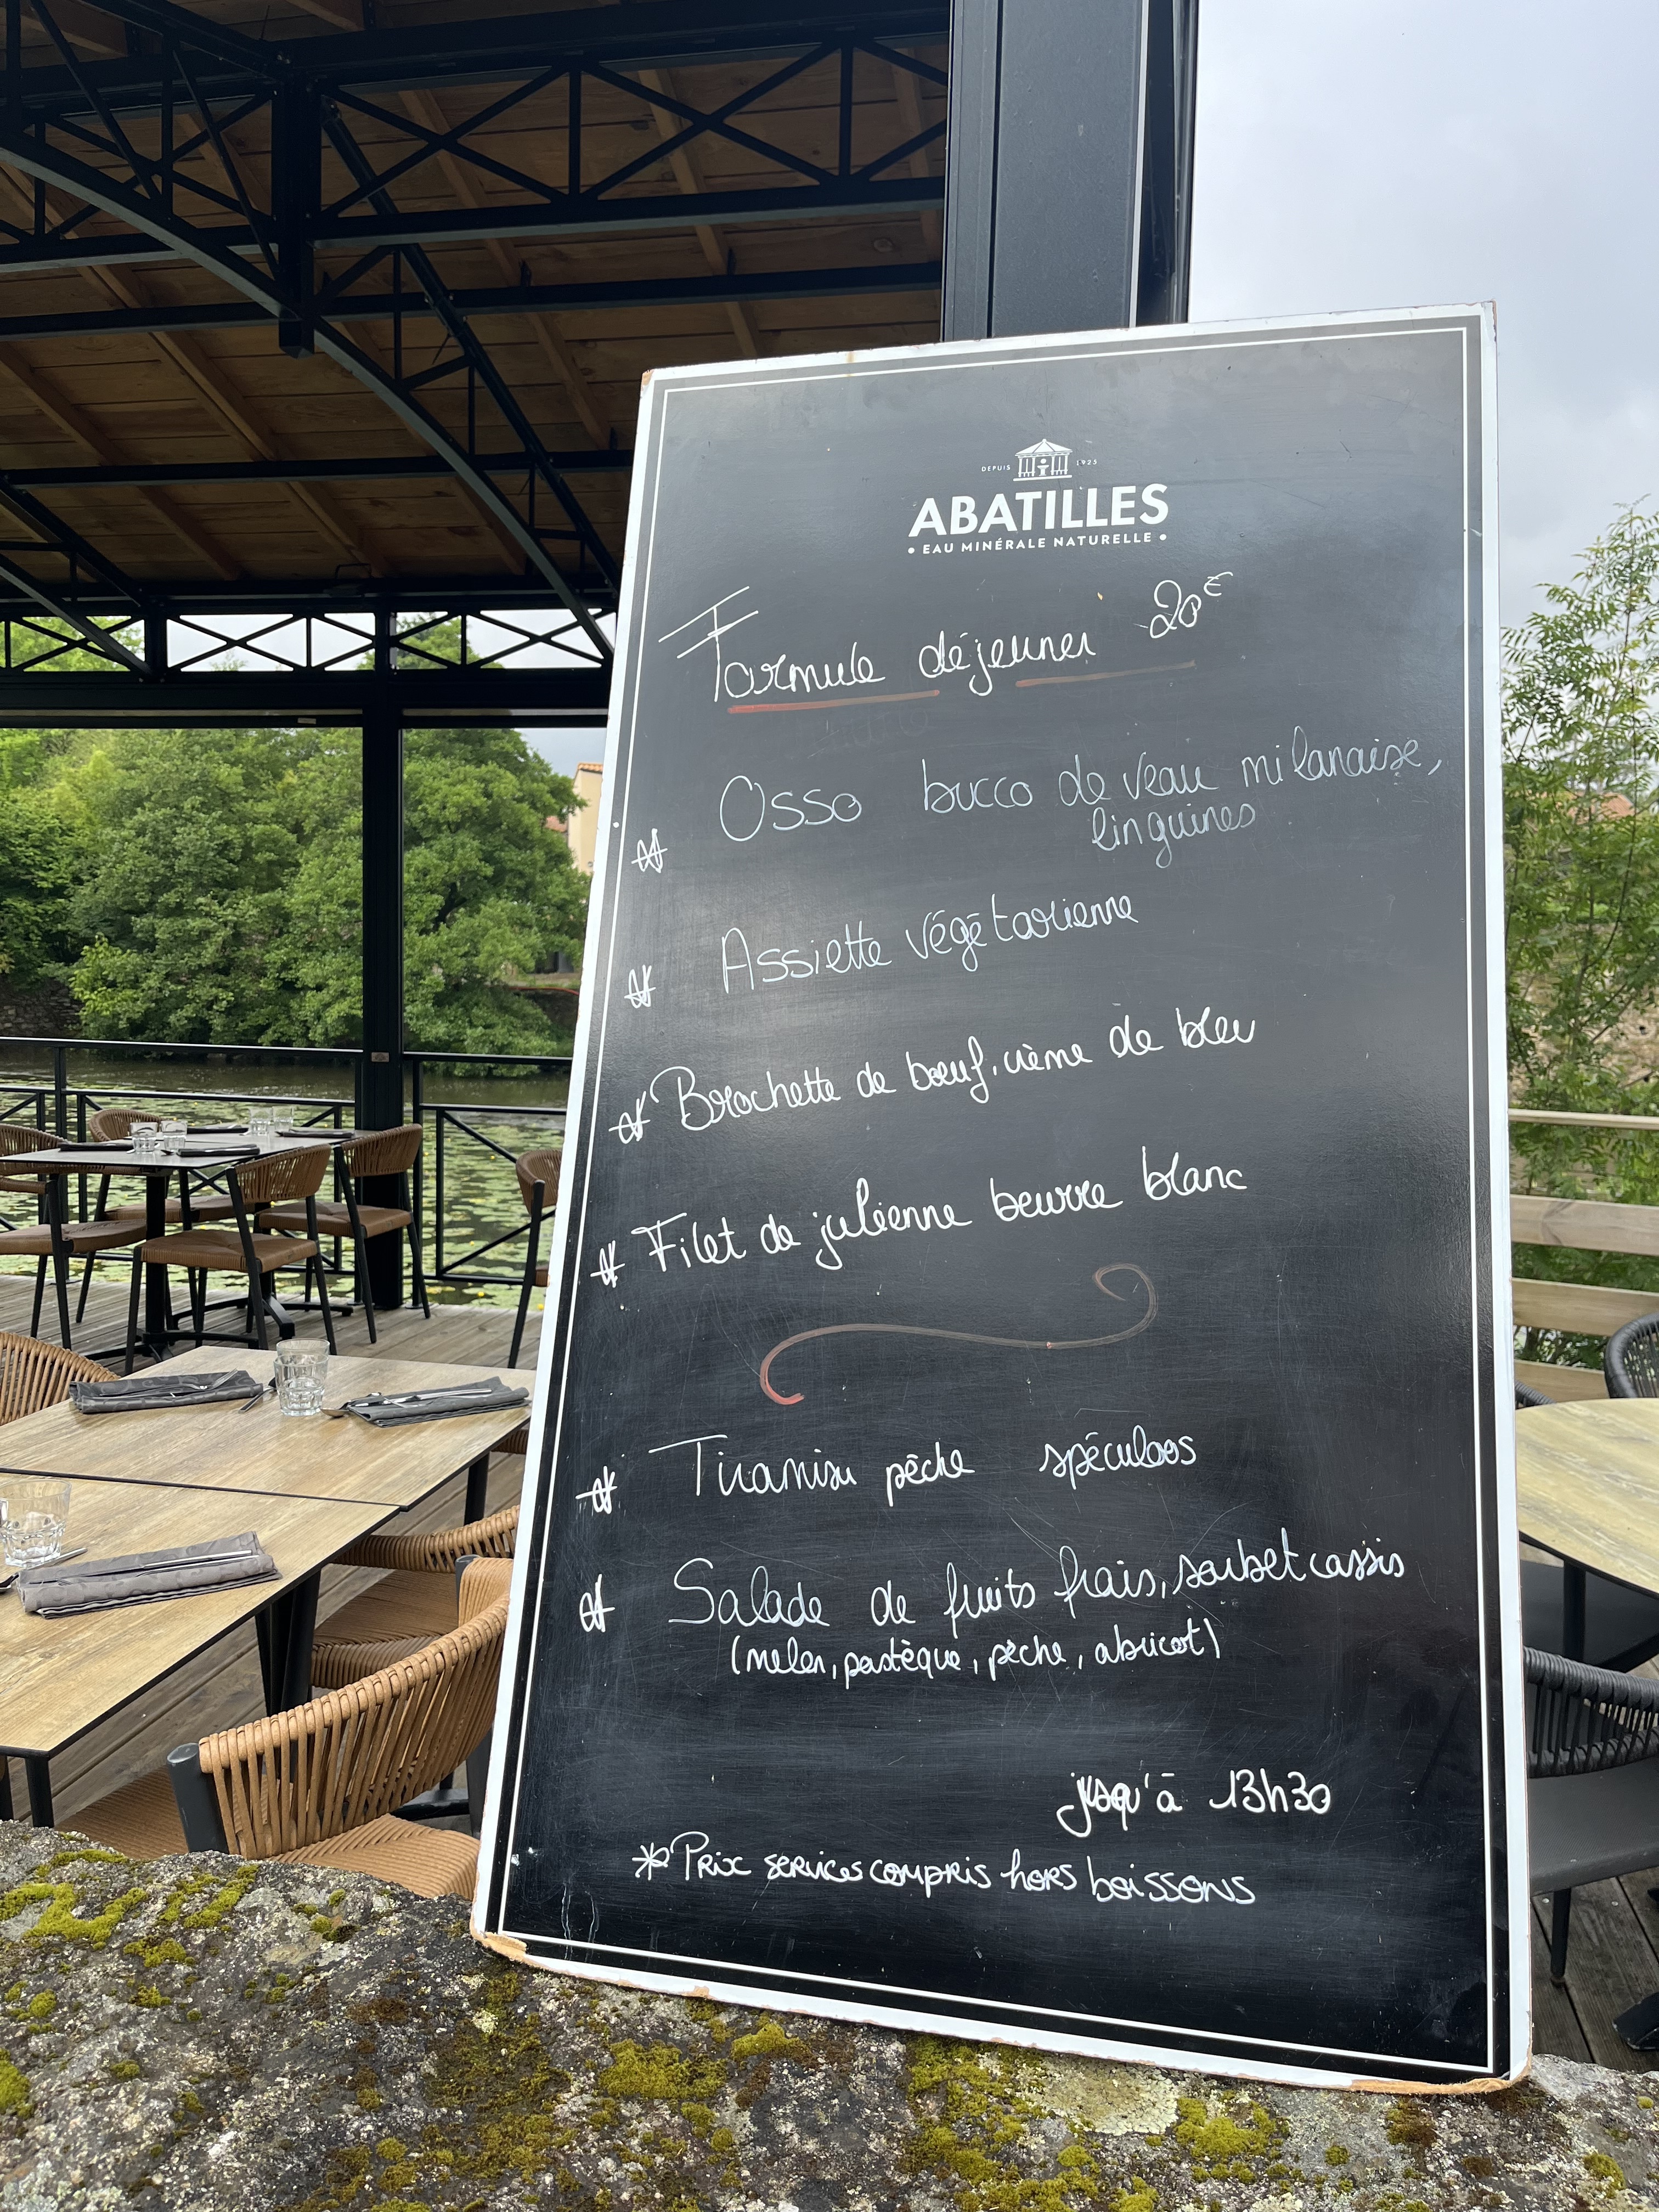 DEPUIS 1925
ABATILLES
• EAU MINÉRALE NATURELLE •
Formule déjeuner 20€
* Osso bucco de veau milanaise,
linguines
* Assiette végétarienne
* Brochette de bœuf, crème de bleu
* Filet de julienne beurre blanc
* Tiramisu pêche spéculoos
* Salade de fruits frais, sorbet cassis
(melon, pastèque, pêche, abricot)
jusqu'à 13h30
* Prix services compris hors boissons